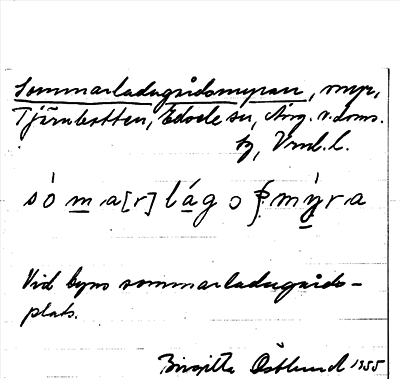 Sommarladugårdsmyran, myr,
Tjärnbotten, Edsele sn, Ång. v. doms.
tg, Vnml. l.
só m a[r] lág ɔ ʂ mýra
Vid byns sommarladugårds-
plats.
Birgitta Östlund 1955